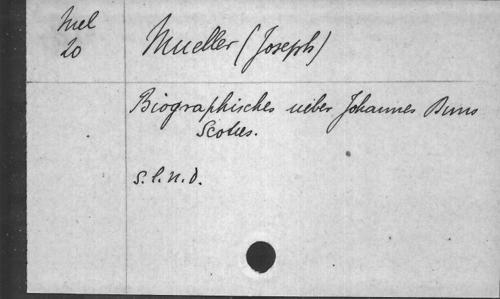 Mel
20
Mueller (Joseph)
Biographisches ueber Johannes Duns
Scotus.
s.l.n.d.